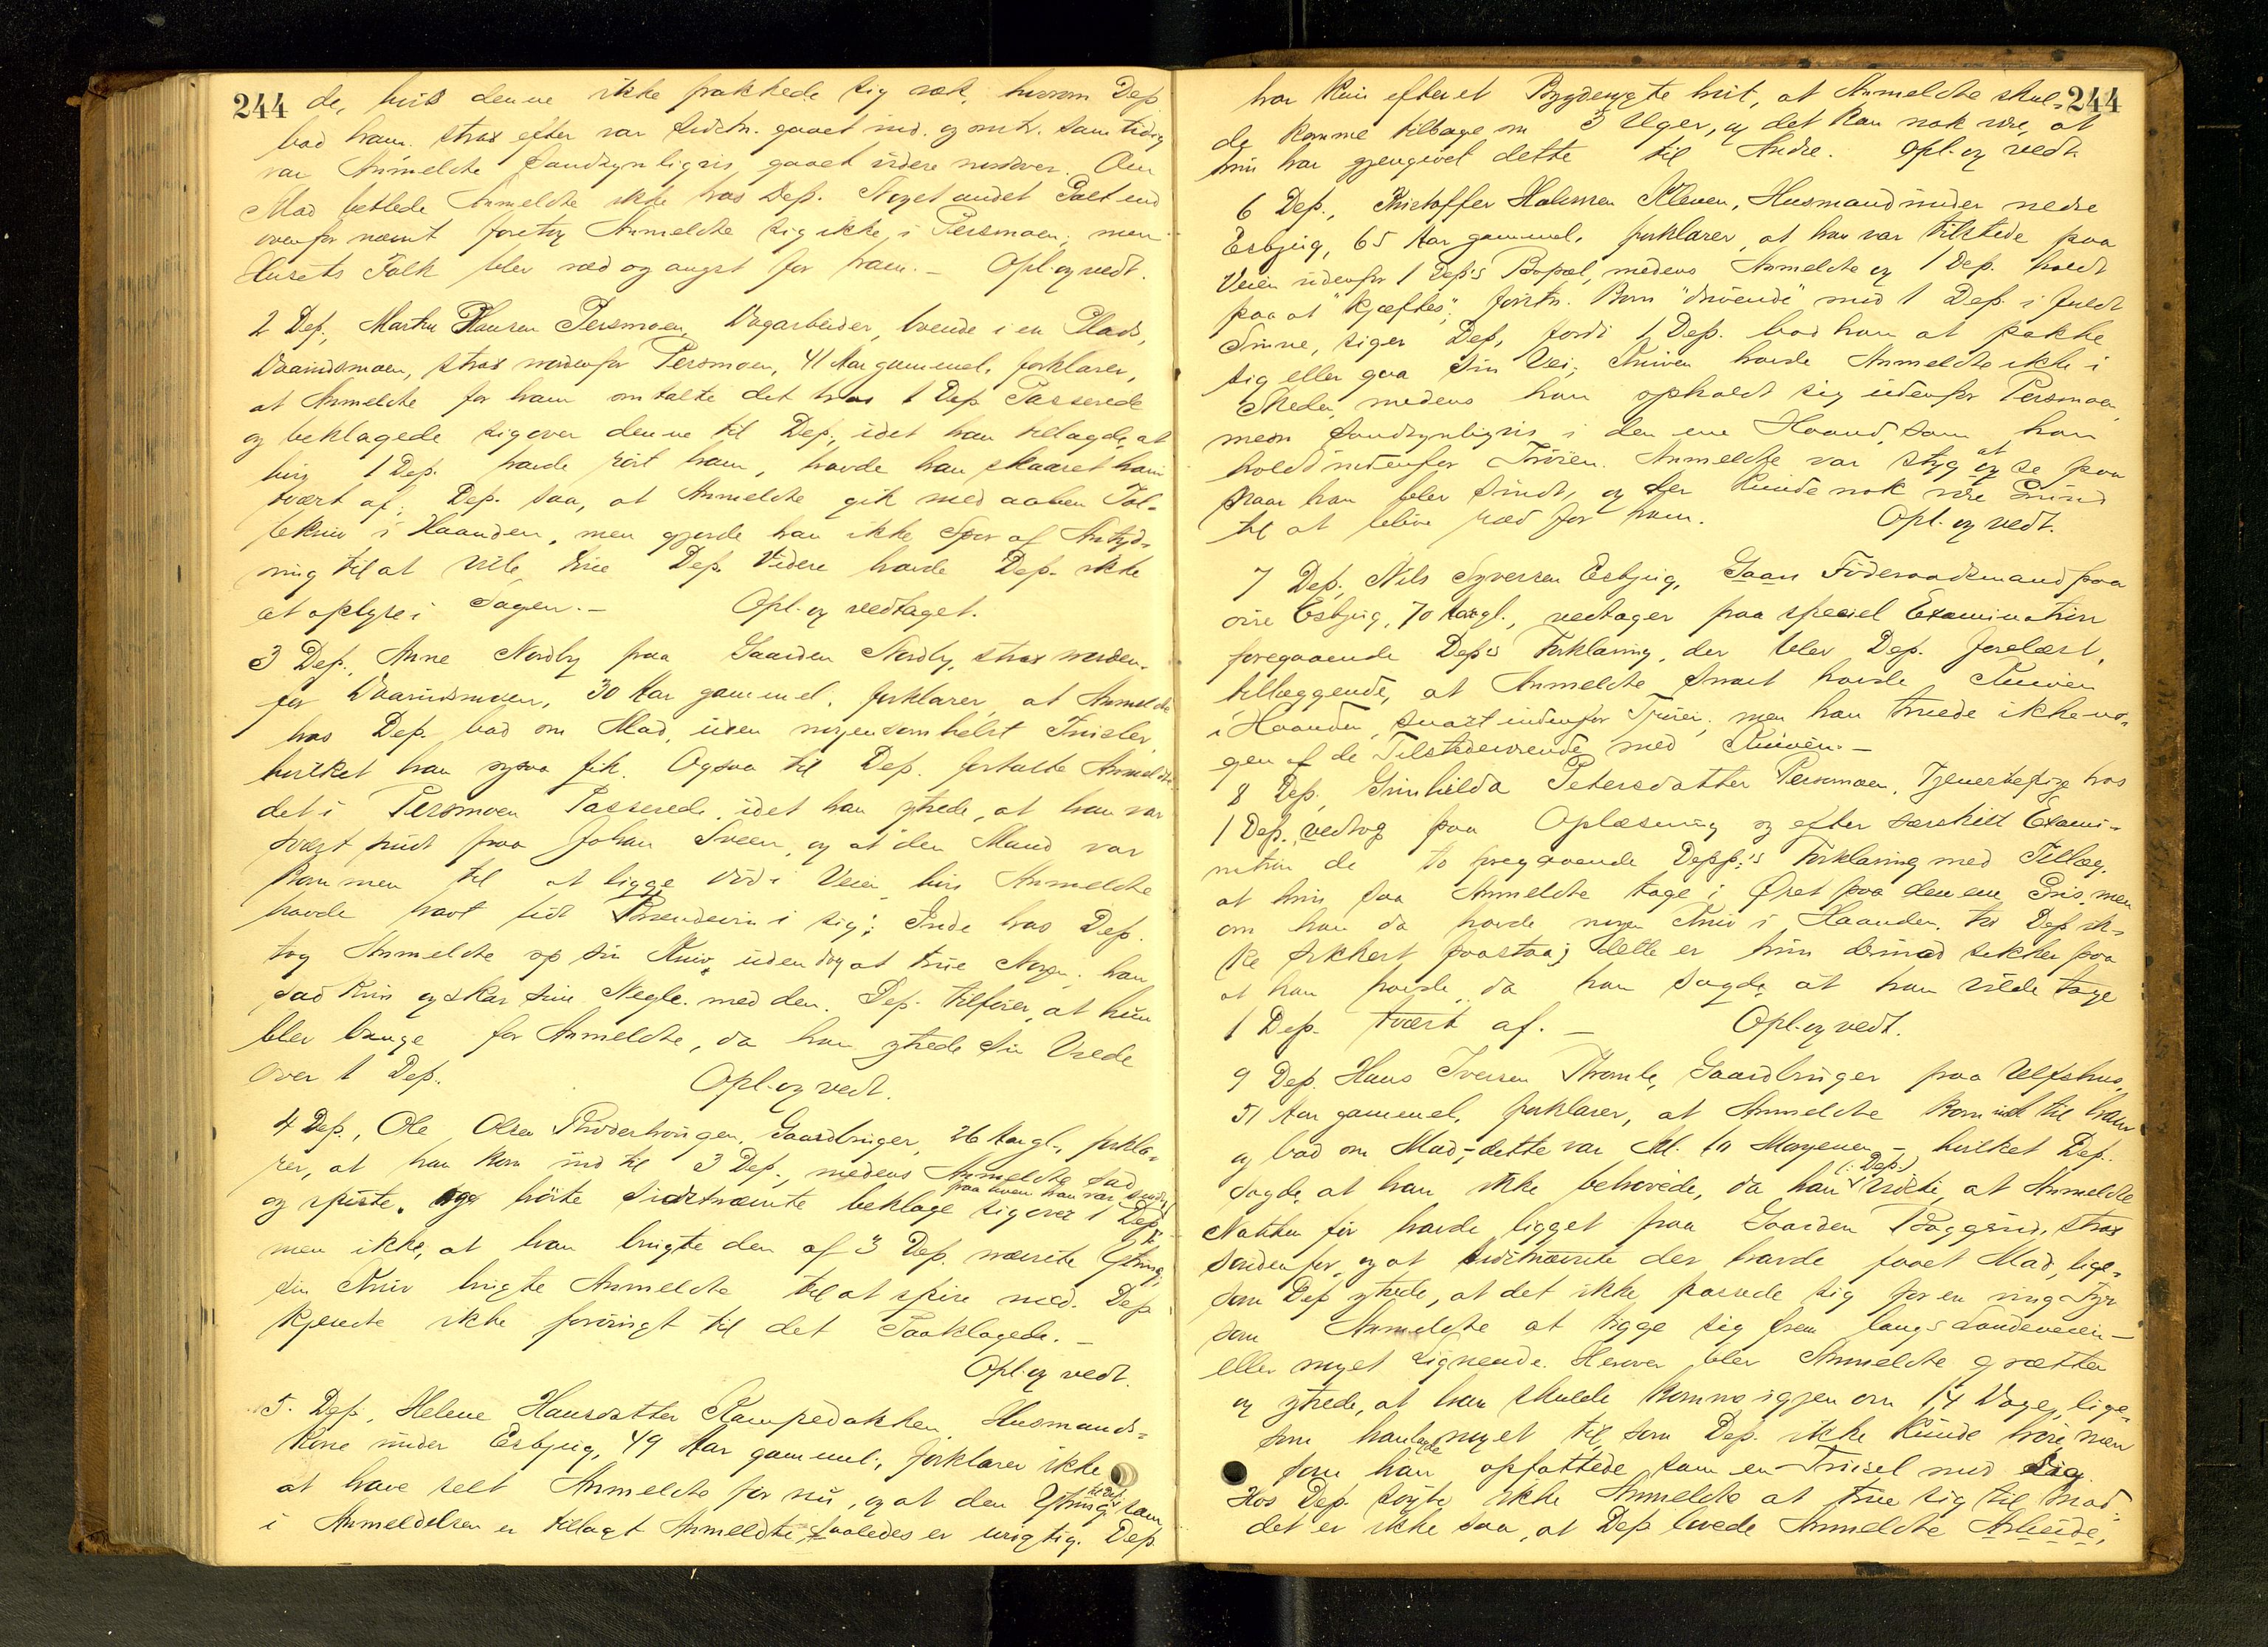 244
de, hvis denne ikke pakkede sig væk, hvorom Dep.
bad ham. Strax efter var sidstn. gaaet ind. og omtr. samtidig
var Anmeldte sandsynligvis gaaet videre nordover. Om
Mad betlede Anmeldte ikke hos Dep. Noget andet Galt end
ovenfor nævnt foretog Anmeldte sig ikke i Persmoen; men
Husets Folk blev ræd og angst for ham. — Opl. og vedt.
2 Dep., Martin Hansen Persmoen, Dagarbeider, boende i en Plads,
strax nordenfor Persmoen, 41 Aar gammel, forklarer,
at Anmeldte for ham omtalte det hos 1 Dep. Passerede
og beklagede sig over denne til Dep., idet han tillagde, at
hvis 1 Dep. havde rört ham, havde han skaaret ham
tvært af; Dep. saa, at Anmeldte gik med aaben Tol-
lekniv i Haanden, men gjorde han ikke Spor af Antyd-
ning til at ville true Dep. Videre havde Dep. ikke
at oplyse i Sagen. — Opl. og vedtaget.
3 Dep., Anne Nordby paa Gaarden Nordby, strax norden-
for 30 Aar gammel, forklarer, at Anmeldte
hos Dep. bad om Mad, uden nogensomhelst Trusler,
hvilket han ogsaa fik. Ogsaa til Dep. fortalte Anmeldte
det i Persmoen Passerede, idet han ytrede, at han var
svært sindt paa Johan Sveen, og at den Mand var
kommen til at ligge död i Veien, hvis Anmeldte
havde havt lidt Brændevin i sig; Inde hos Dep.
tog Anmeldte op sin Kniv, uden dog at true Nogen; han
sad kun og skar sine Negle med den. Dep. tilföier, at hun
blev bange for Anmeldte, da han ytrede sin Vrede
over 1 Dep. Opl. og vedt.
4 Dep., Ole Olsen Gaardbruger, 26 Aar gl., forkla-
rer, at han kom ind til 3 Dep., medens Anmeldte sad
paa hvem han var sindt,
og spiste, og hörte sidstnævnte beklage sig over 1 Dep.,
men ikke, at han brugte den af 3 Dep. nævnte Ytring;
sin Kniv brugte Anmeldte til at spise med. Dep.
kjendte ikke forövrigt til det Paaklagede. —
Opl. og vedt.
5. Dep., Helene Hansdatter Husmands-
kone under Esbjug, 49 Aar gammel, forklarer ikke
at have seet Anmeldte för nu, og at den Ytring, som
til Dep.
i Anmeldelsen er tillagt Anmeldte, saaledes er urigtig. Dep.
244
har kun efter et Bygderygte hört, at Anmeldte skul-
de komme tilbage om 3 Uger, og det kan nok være, at
hun har gjengivet dette til Andre. Opl. og vedt.
6 Dep., Kristoffer Kleven, Husmand under nedre
Esbjug, 65 Aar gammel, forklarer, at han var tilstede paa
Veien udenfor 1 Dep's Bopæl, medens Anmeldte og 1 Dep. holdt
paa at "kjæftes"; förstn. kom "drivende" mod 1 Dep. i fuldt
Sinne, siger Dep., fordi 1 Dep. bad ham at pakke
sig eller gaa sin Vei; Kniven havde Anmeldte ikke i
Skeden, medens han opholdt sig udenfor Persmoen,
men sandsynligvis i den ene Haand, som han
holdt indenfor Tröien. Anmeldte var styg at se paa
naar han blev sindt, og der kunde nok være Grund
til at blive ræd for ham. Opl. og vedt.
7 Dep., Nils Syversen Esbjug, Gaar Föderaadsmand paa
övre Esbjug, 70 Aar gl., vedtager paa speciel Examination
foregaaende Dep's Forklaring, der blev Dep. forelæst,
tillæggende, at Anmeldte snart havde Kniven
i Haanden, snart indenfor Tröien; men han truede ikke no-
gen af de Tilstedeværende med Kniven. —
8 Dep., Gunhilda Petersdatter Persmoen, Tjenestepige hos
1 Dep., vedtog paa Oplæsning og efter særskilt Exami-
nation de to foregaaende Depp.'s Forklaring med Tillæg,
at hun saa Anmeldte tage i Öret paa den ene Gris, men
om han da havde nogen Kniv i Haanden, tör Dep. ik-
ke sikkert paastaa; dette er hun derimod sikker paa
at han havde, da han sagde, at han vilde tage
1 Dep. tvært af. — Opl. og vedt.
9 Dep. Hans Iversen Gaardbruger paa Ulfshus,
51 Aar gammel, forklarer, at Anmeldte kom ind til ham
og bad om Mad, — dette var Kl. 10 Morgenen — hvilket Dep.
(: Dep.)
sagde, at han ikke behövede, da han vidste, at Anmeldte
Natten för havde ligget paa Gaarden strax
söndenfor, og at sidstnævnte der havde faaet Mad, lige-
som Dep. ytrede, at det ikke passede sig for en ung Fyr
som Anmeldte at tigge sig frem langs Landeveien —
eller noget Lignende. Herover blev Anmeldte grætten
og ytrede, at han skulde komme igjen om 14 Dage, lige-
som han lagde noget til, som Dep. ikke kunde höre, men
som han opfattede som en Trusel mod sig.
Hos Dep. sögte ikke Anmeldte at true sig til Mad;
det er ikke saa, at Dep. lovede Anmeldte Arbeide;